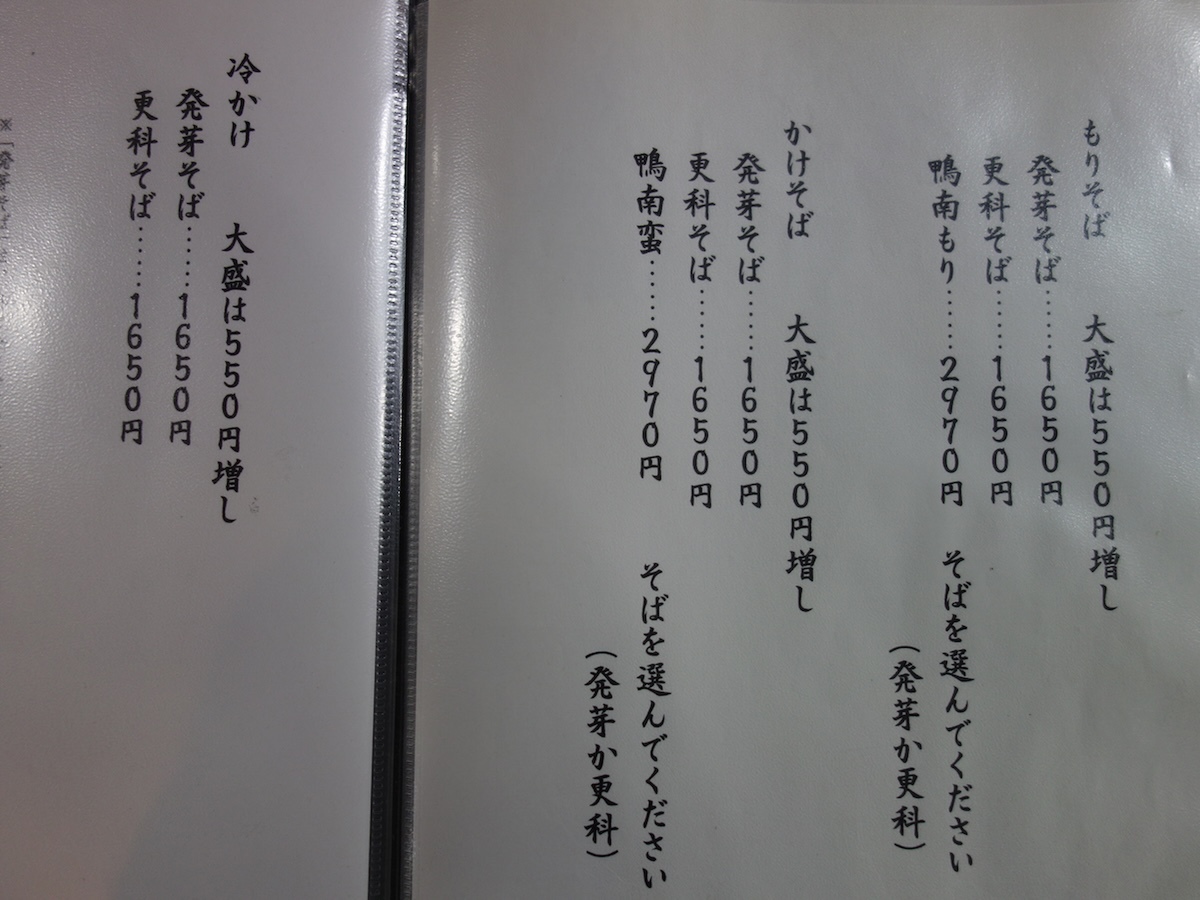 もりそば　大盛は550円増し
発芽そば……1650円
更科そば……1650円
鴨南もり……2970円　そばを選んでください
（発芽か更科）
かけそば　大盛は550円増し
発芽そば……1650円
更科そば……1650円
鴨南蛮……2970円　そばを選んでください
（発芽か更科）
冷かけ　大盛は550円増し
発芽そば……1650円
更科そば……1650円
※「発芽そば